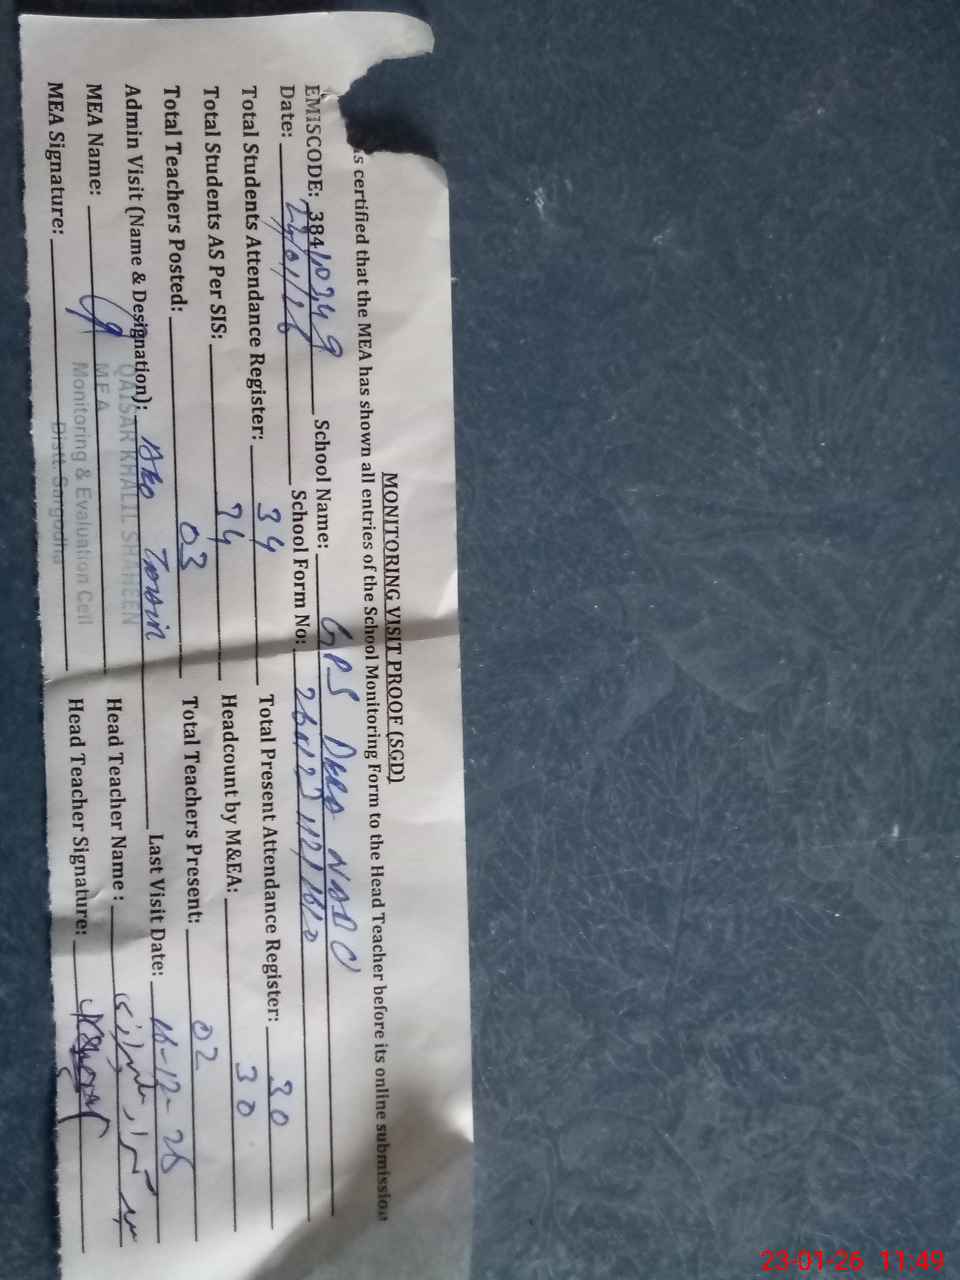 MONITORING VISIT PROOF (SGD)
is certified that the MEA has shown all entries of the School Monitoring Form to the Head Teacher before its online submission
EMISCODE: 38410349 School Name: GPS Dera NABC
Date: School Form No:
Total Students Attendance Register: 34 Total Present Attendance Register: 30
Total Students AS Per SIS: 34 Headcount by M&EA: 30
Total Teachers Posted: 03 Total Teachers Present: 02
Admin Visit (Name & Designation): Last Visit Date: 16-12-25
MEA Name: Head Teacher Name :
MEA Signature: Head Teacher Signature:
QAISAR KHALIL SHAHEEN
M E A
Monitoring & Evaluation Cell
Distt. Sargodha
23-01-26 11:49